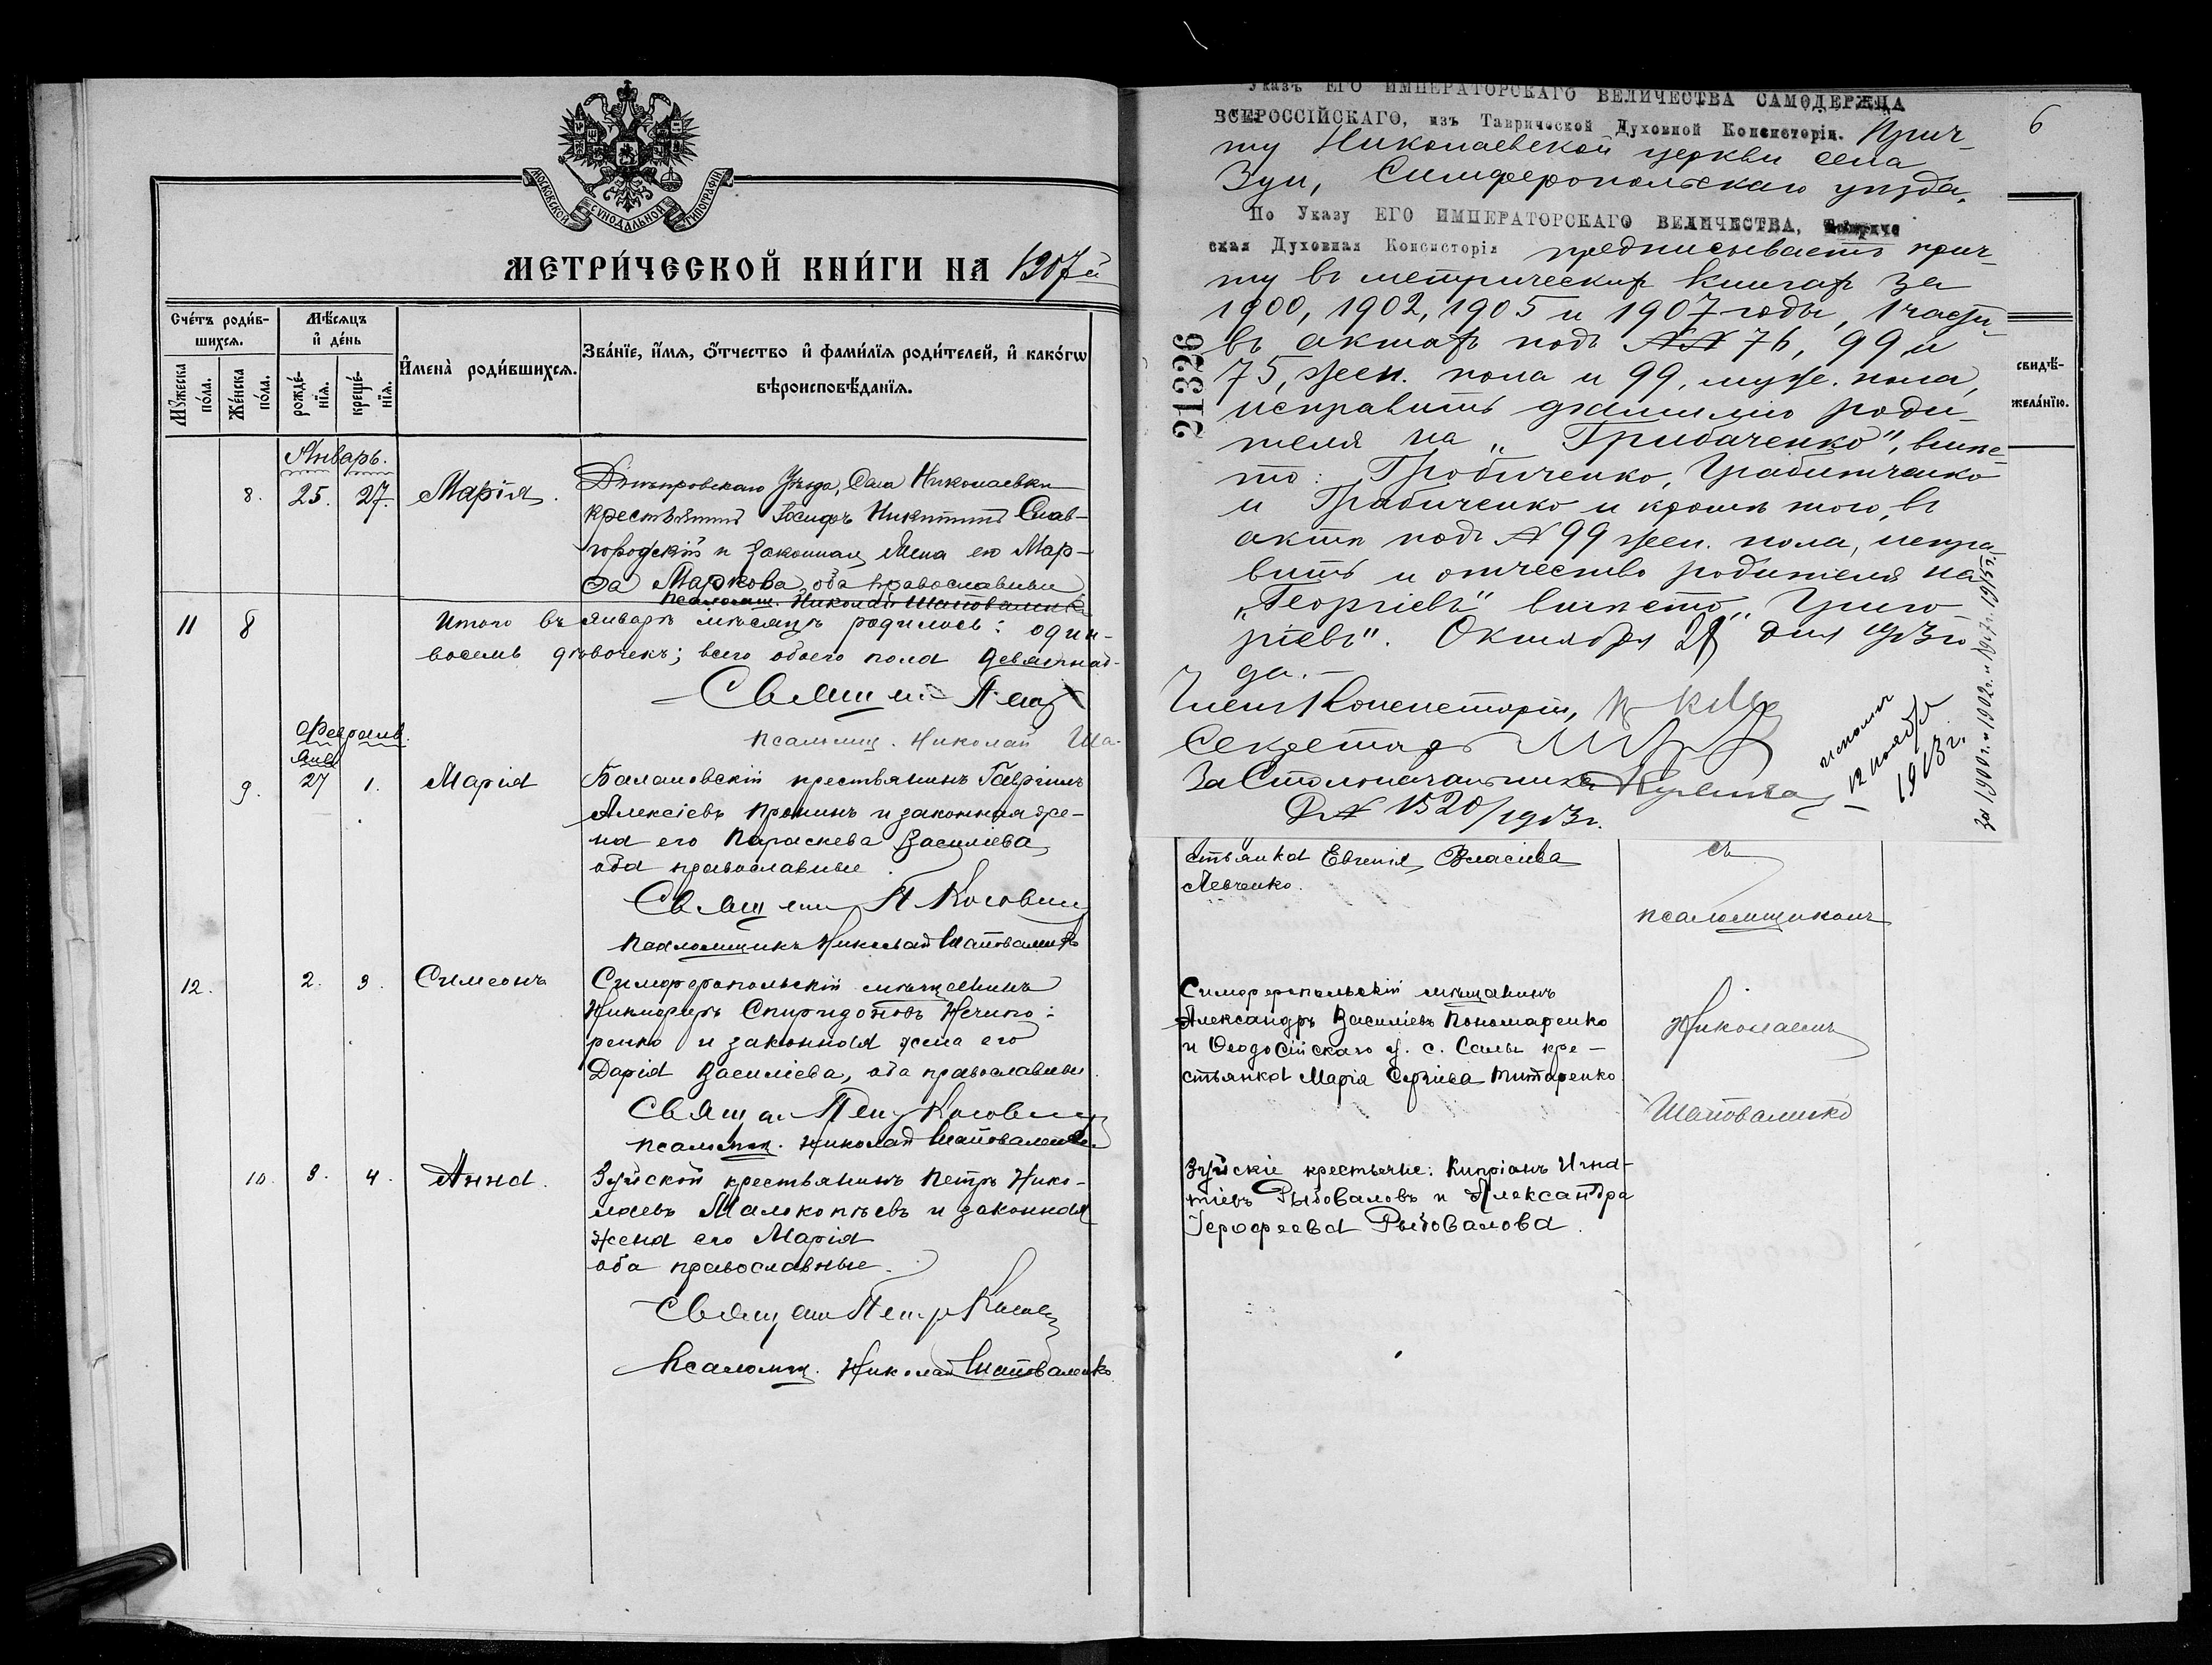 МОСКОВСКОЙ СѴНОДАЛЬНОЙ ТИПОГРАФІИ
МЕТРИ́ЧЕСКОЙ КНИ́ГИ НА 1907й
Сче́тъ роди́в-
шихся.
Мѣ́сяцъ
и҆ де́нь
Му́жеска
по́ла.
Же́нска
по́ла.
рожде́-
нїя.
креще́-
нїя.
И҆мена̀ роди́вшихся.
Зва́нїе, и҆́мя, ѻ҆́тчество и҆ фами́лїя роди́телей, и҆ како́гѡ
вѣроисповѣ́данїя.
Январь.
8. 25. 27. Марія.
Днѣпровскаго Уѣзда, Села Николаевки
крестьянинъ Іосифъ Никитинъ Слав-
городскій и законная жена его Мар-
ѳа Маркова, оба православные
псаломщ. Николай Шаповаленко
11 8 Итого въ январѣ мѣсяцѣ родилось: один-
восемь дѣвочекъ; всего обоего пола девятнад-
Псаломщ. Николай Ша-
Февраль.
Янв
9. 27 1. Марія
Балашовскій крестьянинъ Гавріилъ
Алексіевъ Пронинъ и законная же-
на его Параскева Василіева,
оба православные
Свящ Косович
Псаломщикъ Николай Шаповаленко
12. 2. 3. Симеонъ
Симферопольскій мѣщанинъ
Никифоръ Спиридоновъ Нечипо-
ренко и законная жена его
Дарія Василіева, оба православные.
Псаломщ. Николай Шаповаленко
10. 3. 4. Анна.
Зуйскій крестьянинъ Петръ Нико-
лаевъ Малокопѣевъ и законная
жена его Марія
оба православные.
Псаломщ. Николай Шаповаленко
6
Указъ ЕГО ИМПЕРАТОРСКАГО ВЕЛИЧЕСТВА САМОДЕРЖЦА
ВСЕРОССІЙСКАГО, изъ Таврической Духовной Консисторіи. Прич-
ту Николаевской церкви села
Зуи, Симферопольскаго уѣзда.
По Указу ЕГО ИМПЕРАТОРСКАГО ВЕЛИЧЕСТВА, Тавриче
ская Духовная Консисторія предписываетъ прич-
ту въ метрическихъ книгахъ за
1900, 1902, 1905 и 1907 годы, 1 части
въ актахъ подъ №№ 76, 99 и
75, жен. пола и 99, муже. пола,
исправить фамилію роди-
теля на „Грибаченко", вмѣс-
то: Гробиченко, Грабитченко
и Грабиченко и кромѣ того, въ
актѣ подъ № 99 жен. пола, испра-
вить и отчество родителя на
„Георгіевъ" вмѣсто „Григо
ріевъ". Октября 28 дня 1913 го
да.-
Членъ Консисторіи,
Секретарь
За Столоначальника
№ 1520/1913г.
21326
исполн
12 ноября
1913 г.
за 1900 г. и 1902 г. и 1907 г. 1905 г.
свидѣ́-
жела́нїю.
стьянка Евгенія Власіева
Левченко.
съ
псаломщикомъ
Симферопольскій мѣщанинъ
Александръ Василіевъ Пономаренко
и Ѳеодосійскаго у. с. Салы кре-
стьянка Марія Сергіева Титаренко
Николаемъ
Шаповаленко
Зуйскіе крестьяне: Кипріанъ Игна-
тіевъ Рыбоваловъ и Александра
Іероѳеева Рыбовалова.